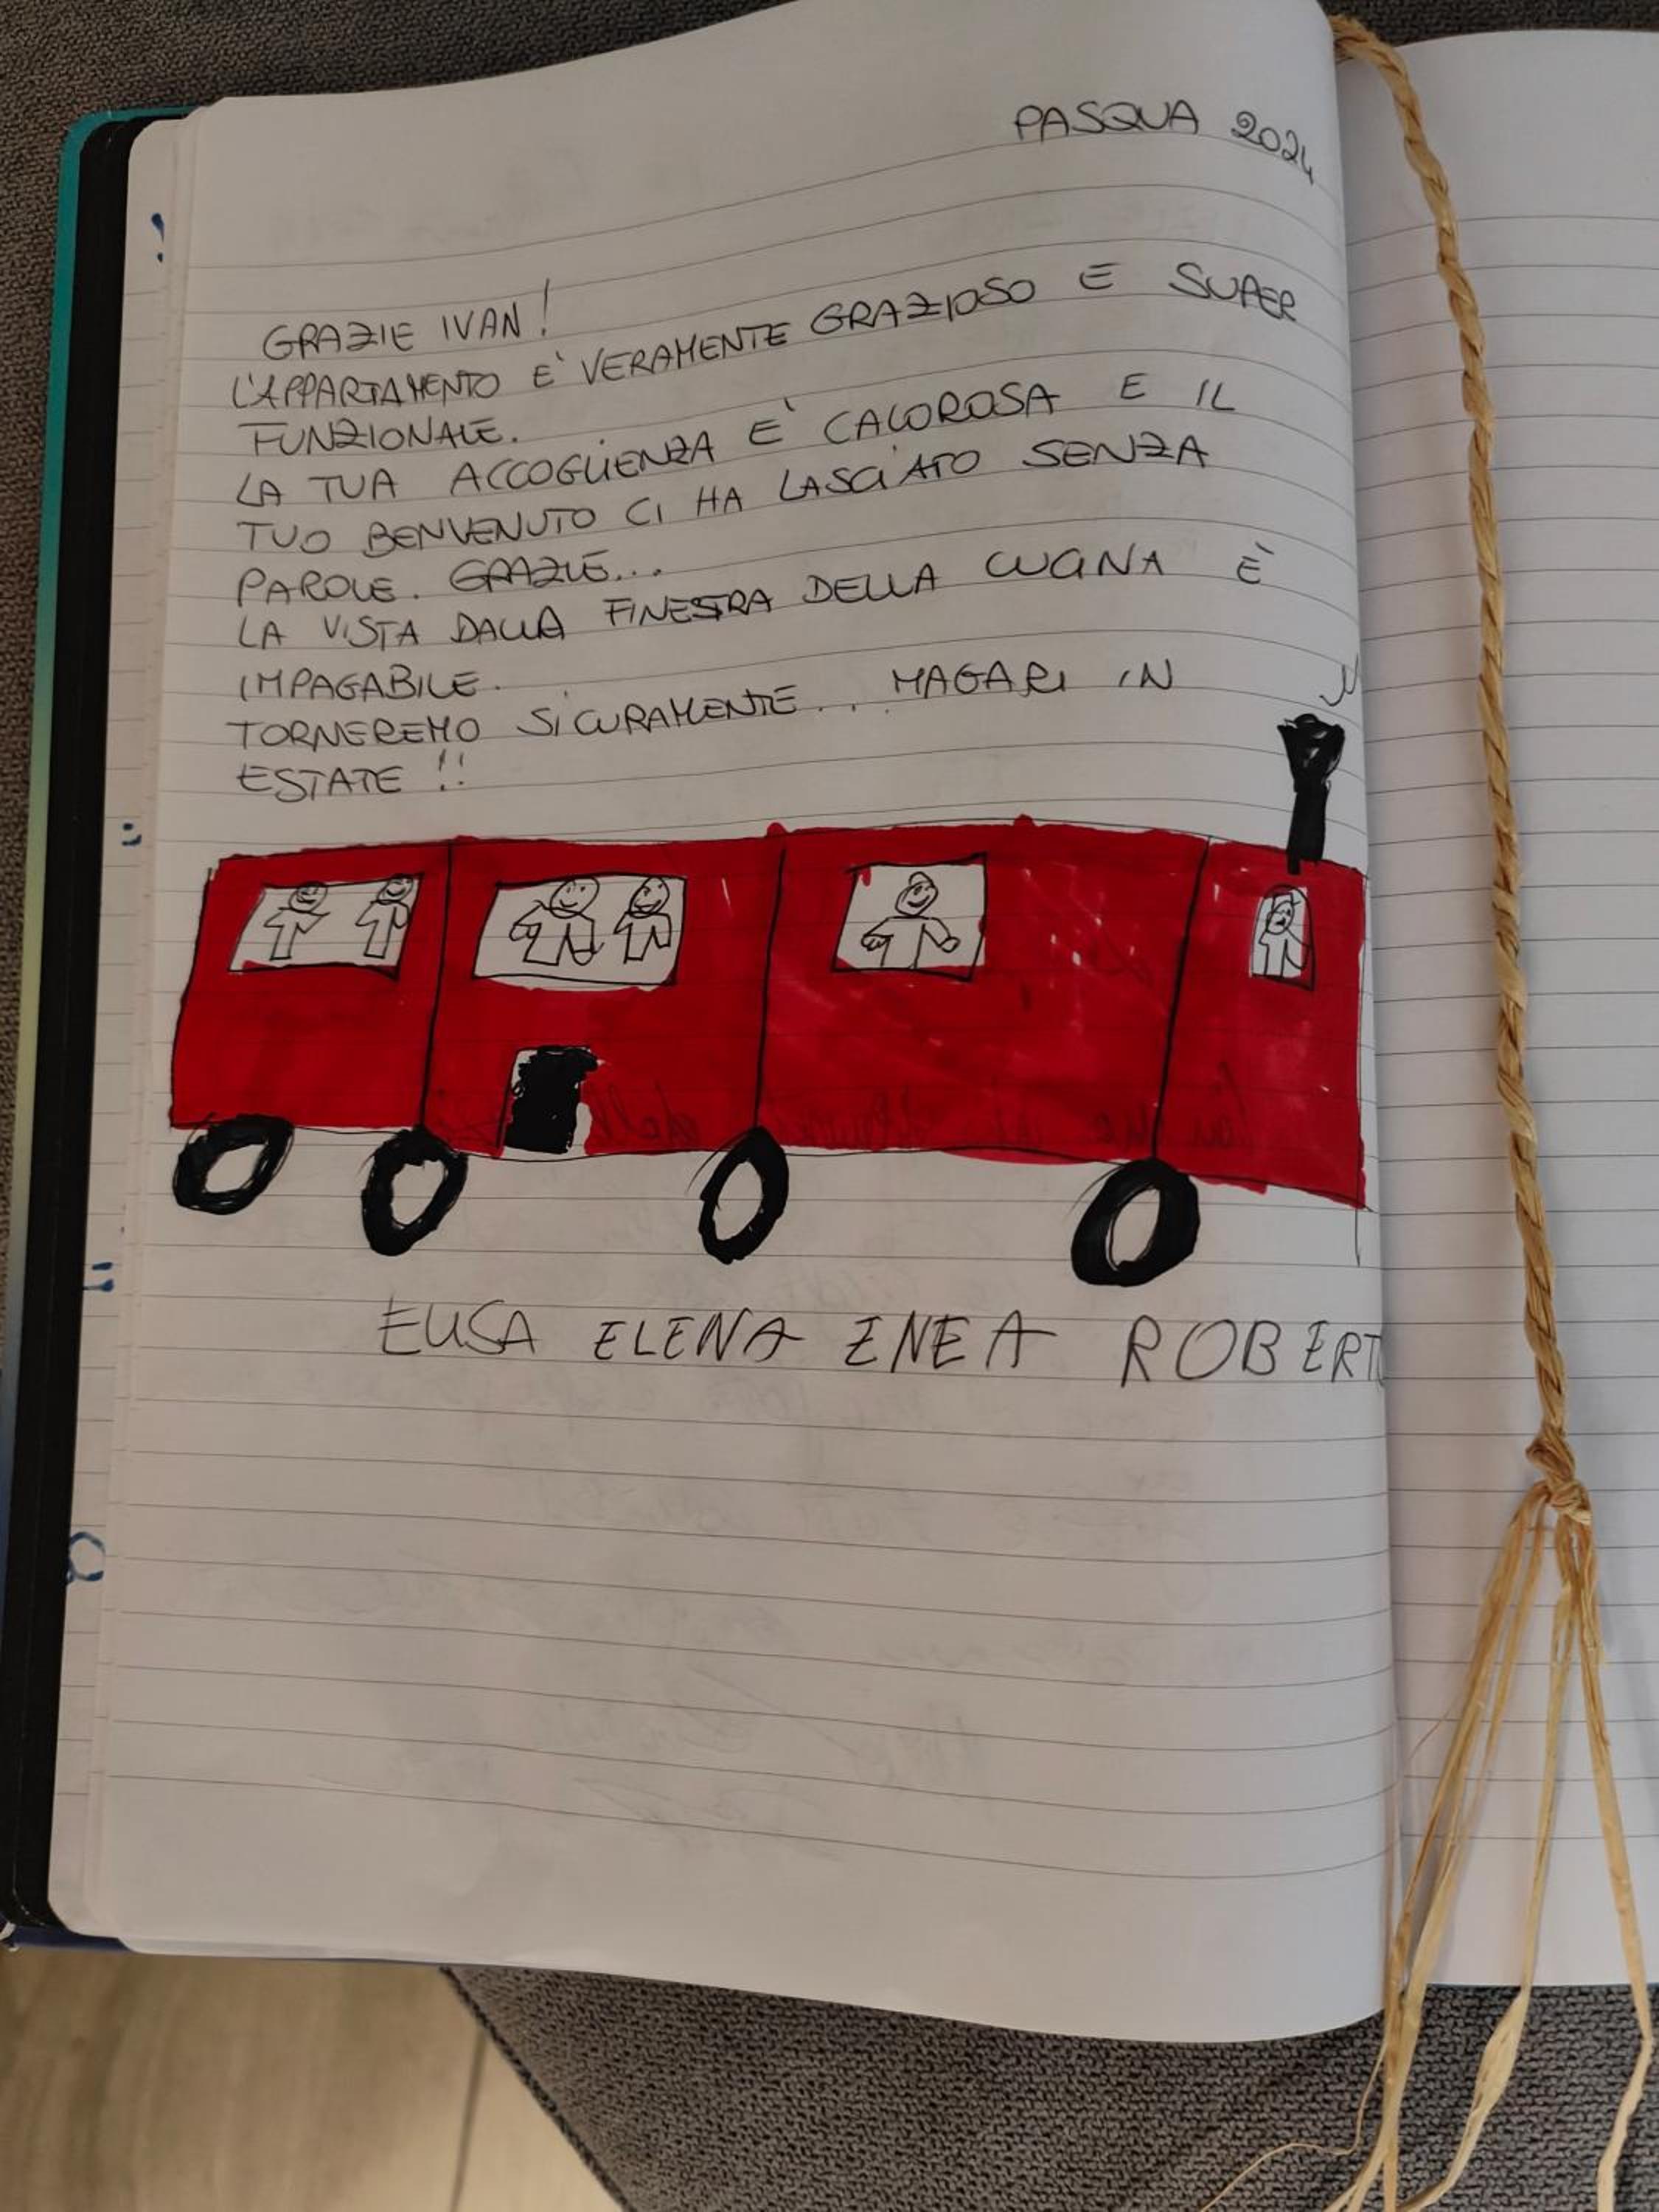 PASQUA 2024
GRAZIE IVAN!
L'APPARTAMENTO E' VERAMENTE GRAZIOSO E SUPER
FUNZIONALE.
LA TUA ACCOGLIENZA E' CALOROSA E IL
TUO BENVENUTO CI HA LASCIATO SENZA
PAROLE. GRAZIE...
LA VISTA DALLA FINESTRA DELLA CUCINA È
IMPAGABILE.
TORNEREMO SICURAMENTE... MAGARI IN
ESTATE!!
ELISA ELENA ENEA ROBERTO